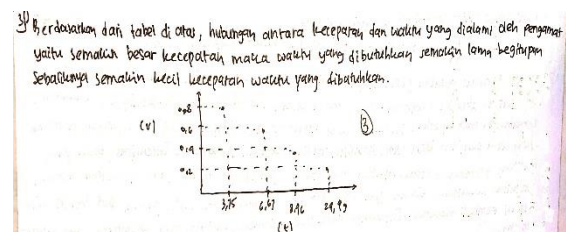 3) Berdasarkan dari tabel di atas, hubungan antara kecepatan dan waktu yang dialami oleh pengamat
yaitu semakin besar kecepatan maka waktu yang dibutuhkan semakin lama begitupun
Sebaliknya semakin kecil kecepatan waktu yang dibutuhkan.
0,8
(v)
0,6
③
0,4
0,2
3,75 6,67 8,96 29,99
(t)